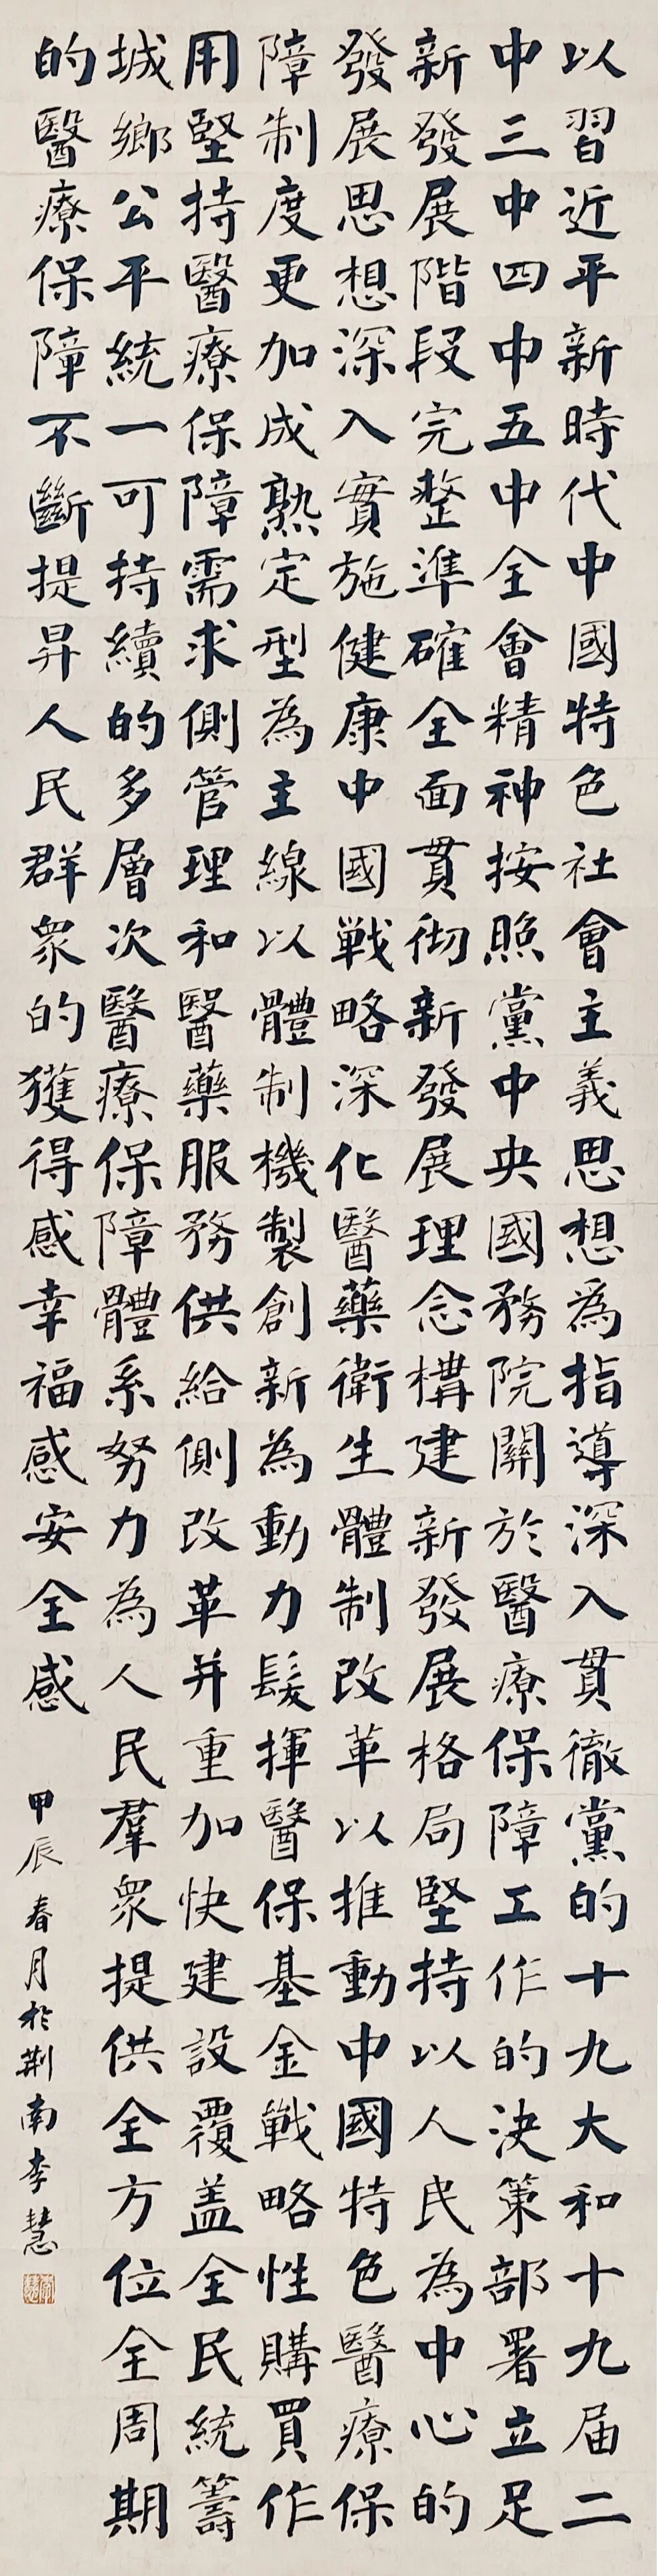 以習近平新時代中國特色社會主義思想為指導深入貫徹黨的十九大和十九届二
中三中四中五中全會精神按照黨中央國務院關於醫療保障工作的決策部署立足
新發展階段完整準確全面貫彻新發展理念構建新發展格局堅持以人民為中心的
發展思想深入實施健康中國戦略深化醫藥衛生體制改革以推動中國特色醫療保
障制度更加成熟定型為主線以體制機製創新為動力髮揮醫保基金戰略性購買作
用堅持醫療保障需求側管理和醫藥服務供給側改革并重加快建設覆盖全民統籌
城鄉公平統一可持續的多層次醫療保障體系努力為人民羣衆提供全方位全周期
的醫療保障不斷提昇人民群衆的獲得感幸福感安全感
甲辰春月於荆南李慧